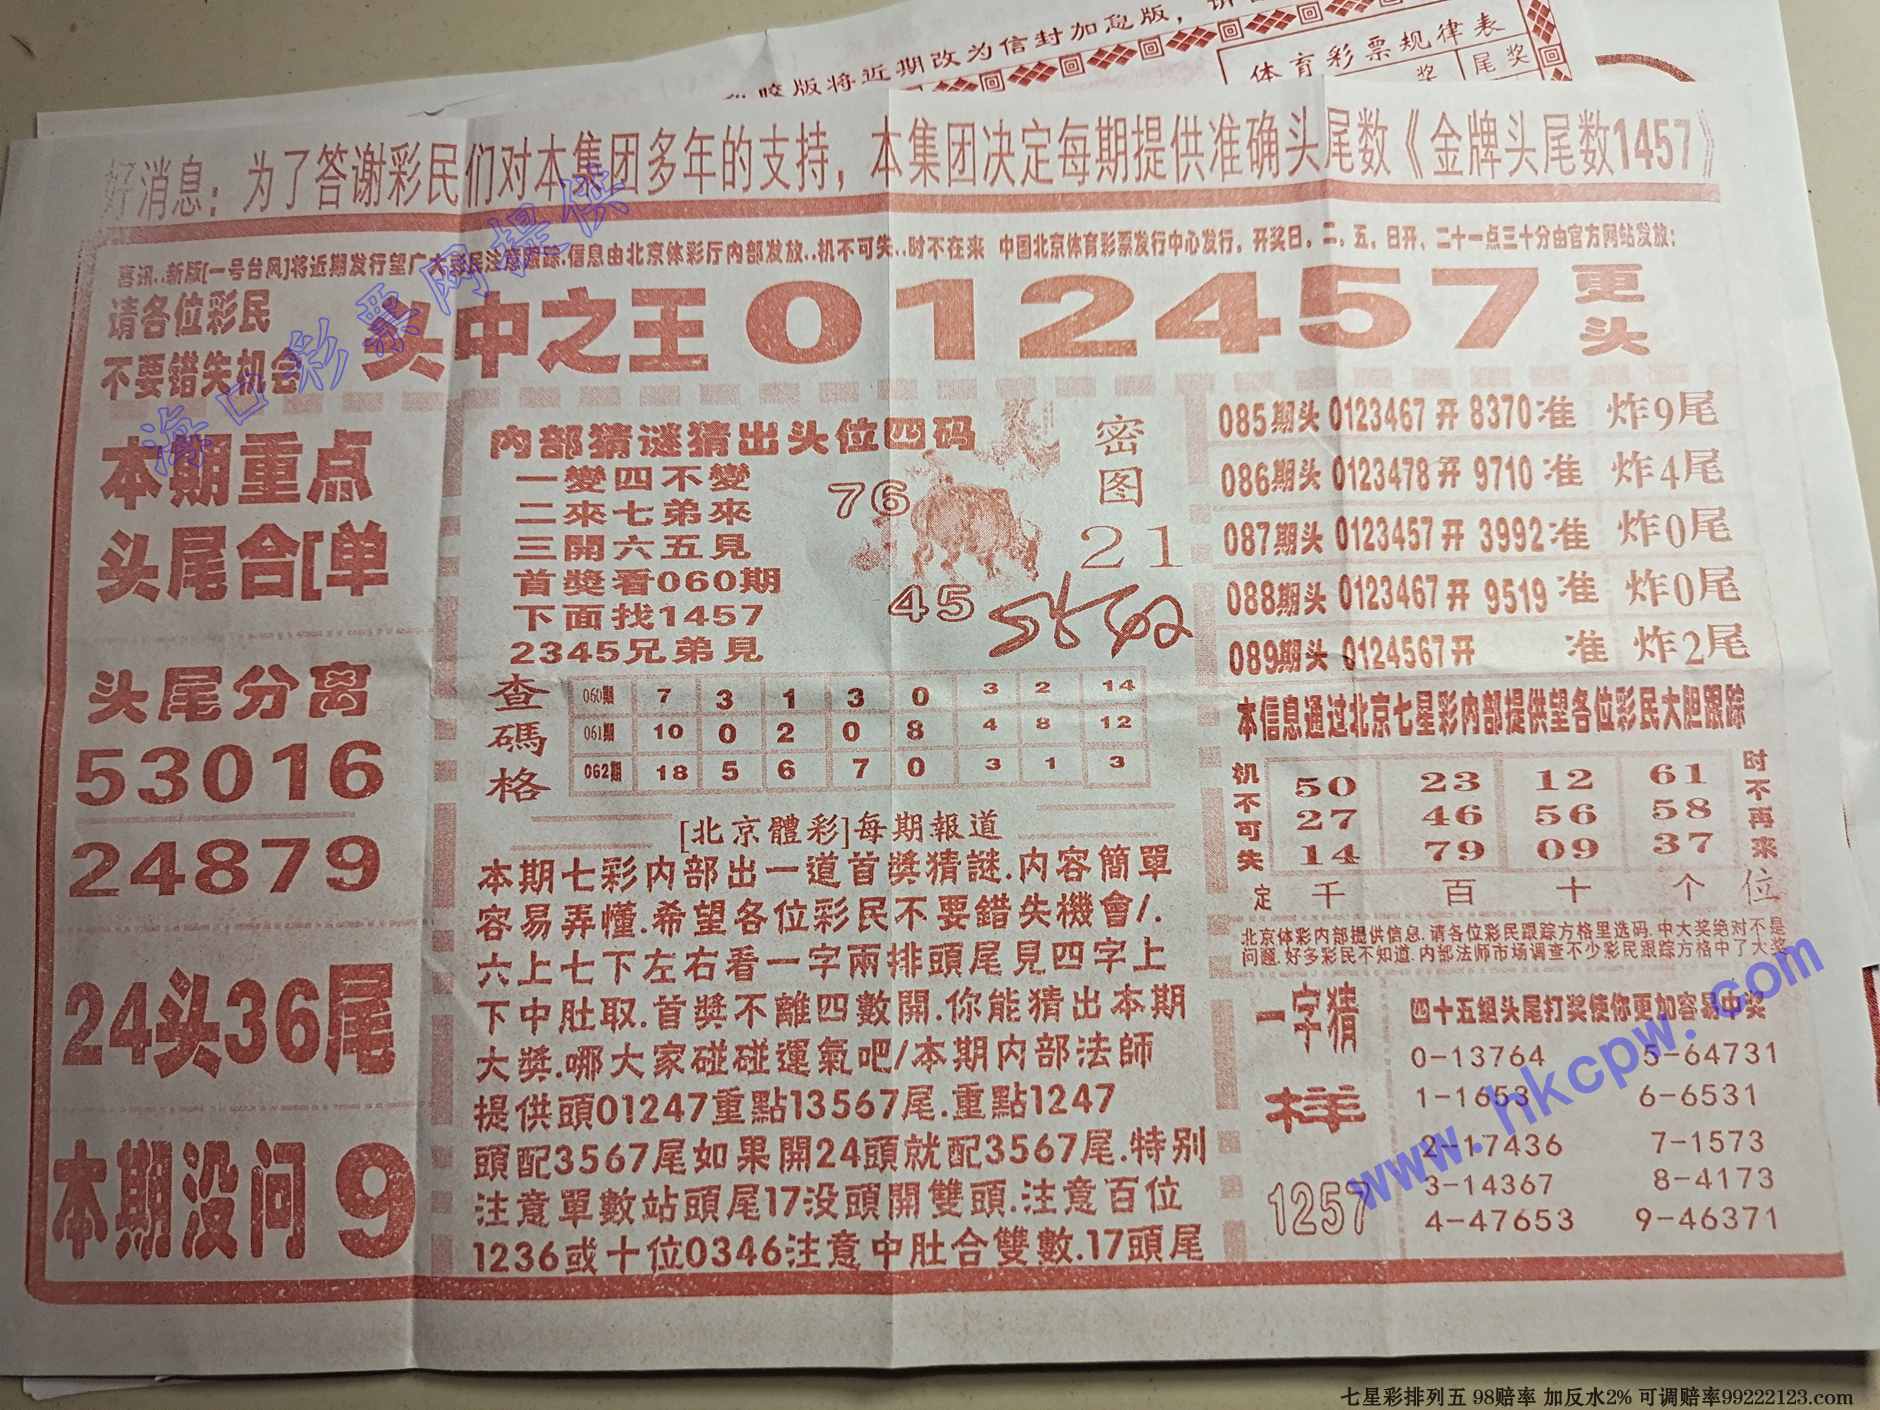 胶版将近期改为信封加急版，
体育彩票规律表
奖 尾奖
好消息：为了答谢彩民们对本集团多年的支持，本集团决定每期提供准确头尾数《金牌头尾数1457》
喜讯..新版[一号台风]将近期发行望广大彩民注意跟踪.信息由北京体彩厅内部发放..机不可失..时不在来 中国北京体育彩票发行中心发行，开奖日，二、五、日开、二十一点三十分由官方网站发放；
请各位彩民
不要错失机会
头中之王 012457 更头
本期重点
头尾合[单
头尾分离
53016
24879
24头36尾
本期没问 9
内部猜谜猜出头位四码
一變四不變
二來七弟來
三開六五見
首獎看060期
下面找1457
2345兄弟見
密图
76
21
45
查碼格
060期 7 3 1 3 0 3 2 14
061期 10 0 2 0 8 4 8 12
062期 18 5 6 7 0 3 1 3
[北京體彩]每期報道
本期七彩内部出一道首獎猜謎.内容簡單
容易弄懂.希望各位彩民不要錯失機會/.
六上七下左右看一字兩排頭尾見四字上
下中肚取.首獎不離四數開.你能猜出本期
大獎.哪大家碰碰運氣吧/本期内部法師
提供頭01247重點13567尾.重點1247
頭配3567尾如果開24頭就配3567尾.特别
注意單數站頭尾17没頭開雙頭.注意百位
1236或十位0346注意中肚合雙數.17頭尾
085期头 0123467 开 8370 准 炸9尾
086期头 0123478 开 9710 准 炸4尾
087期头 0123457 开 3992 准 炸0尾
088期头 0123467 开 9519 准 炸0尾
089期头 0124567 开 准 炸2尾
本信息通过北京七星彩内部提供望各位彩民大胆跟踪
机不可失
50 23 12 61
27 46 56 58
14 79 09 37
时不再来
定 千 百 十 个 位
北京体彩内部提供信息.请各位彩民跟踪方格里选码.中大奖绝对不是
问题.好多彩民不知道.内部法师市场调查不少彩民跟踪方格中了大奖
一字猜
样
1257
四十五组头尾打奖使你更加容易中奖
0-13764 5-64731
1-1653 6-6531
2-17436 7-1573
3-14367 8-4173
4-47653 9-46371
海口彩票网提供
www.hkcpw.com
七星彩排列五 98赔率 加反水2% 可调赔率99222123.com